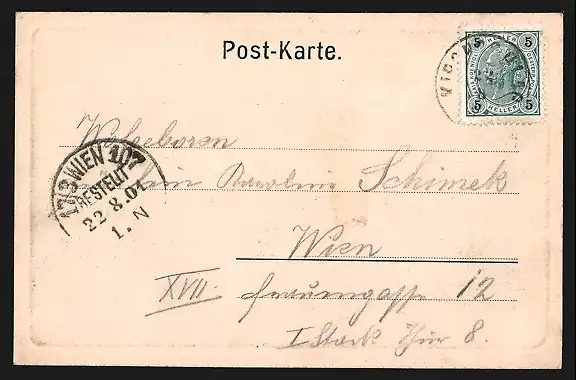 Post-Karte.
5 5
HELLER
5 5
Wohlgeboren
WIEN 107
BESTELLT
22.8.01
1. N
Schimek
Wien
XVII. 12
I Stock Thür 8.